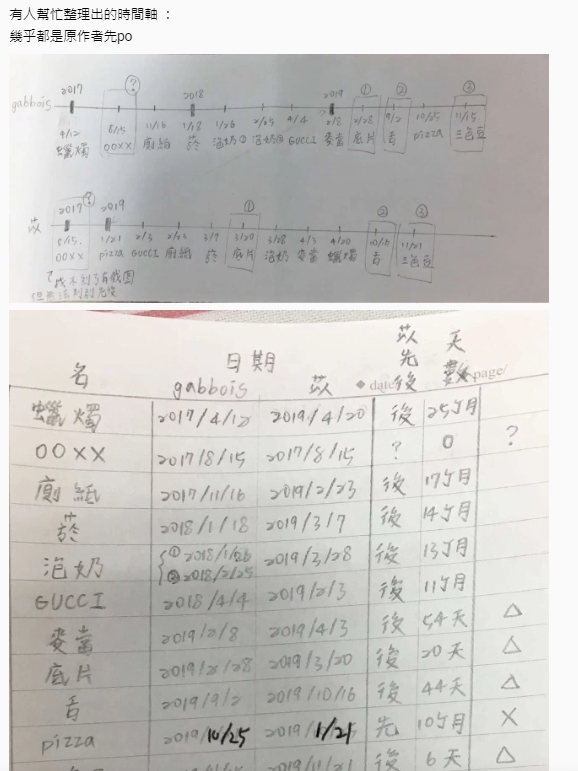 有人幫忙整理出的時間軸 ：
幾乎都是原作者先po
gabbois
2017 ? 2018 2019 ① ② ③
4/12 8/15 11/16 1/18 1/26 2/25 4/4 2/8 2/28 9/2 10/25 11/15
蠟燭 OOXX 廁紙 菸 泡奶① 泡奶② GUCCI 麥當 底片 舌 pizza 三色豆
苡
2017 ? 2019 ① ② ③
8/15 1/21 2/3 2/23 3/7 3/20 3/28 4/3 4/20 10/16 11/21
OOXX pizza GUCCI 廁紙 菸 底片 泡奶 麥當 蠟燭 舌 三色豆
找不到有截圖
名 日期 苡先後 天數
gabbois 苡 ◆ date page/
蠟燭 2017/4/12 2019/4/20 後 25個月
OOXX 2017/8/15 2017/8/15 ? 0 ?
廁紙 2017/11/16 2019/2/23 後 17個月
菸 2018/1/18 2019/3/7 後 14個月
泡奶 ① 2018/1/26 ② 2018/2/25 2019/3/28 後 13個月
GUCCI 2018/4/4 2019/2/3 後 11個月
麥當 2019/2/8 2019/4/3 後 54天 △
底片 2019/2/28 2019/3/20 後 20天 △
舌 2019/9/2 2019/10/16 後 44天 △
pizza 2019/10/25 2019/1/21 先 10個月 X
2019/11/21 後 6天 △